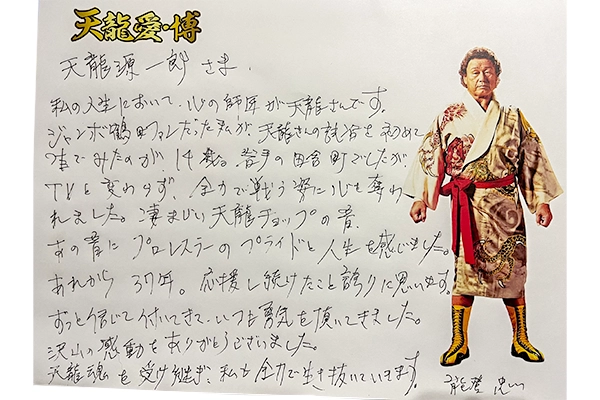 天龍愛・博
天龍源一郎さま.
私の人生において、心の師匠が天龍さんです。
ジャンボ鶴田ファンだった私が、天龍さんの試合を初めて
生でみたのが、14歳。岩手の田舎町でしたが
TVと変わらず、全力で戦う姿に心を奪わ
れました。凄まじい天龍チョップの音.
あの音に プロレスラーのプライドと人生を感じました。
あれから 37年。応援し続けたこと誇りに思います。
ずっと信じて付いてきて、いつも勇気を頂いてきました。
沢山の感動をありがとうございました。
天龍魂を受け継ぎ、私も全力で生き抜いていきます。